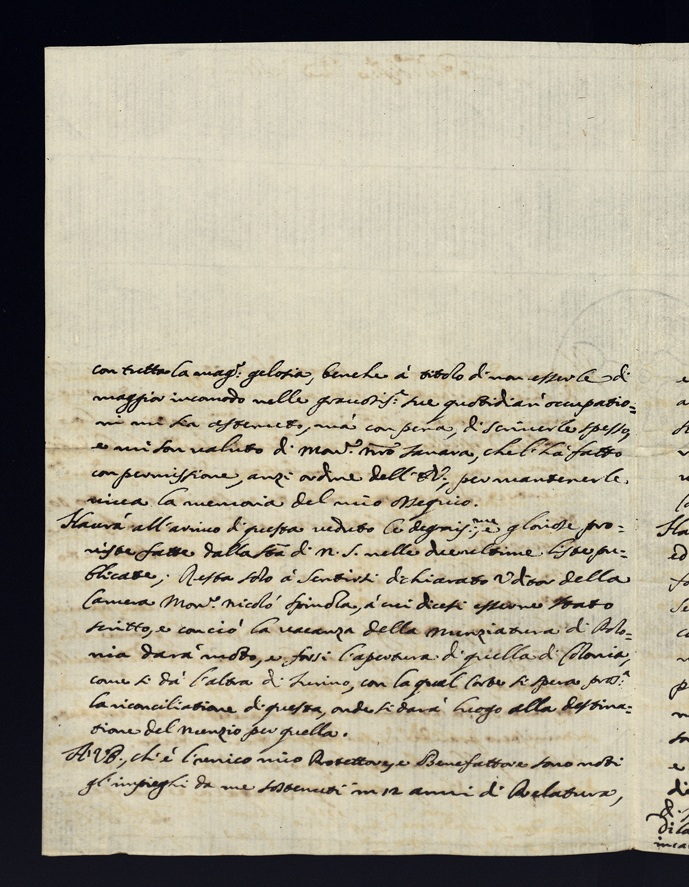 con tutta la magr: gelosia, benche à titolo di non esserle di
maggior incomodo nelle gravosis.e sue quotidiane occupatio=
ni mi sia astenuto, mà con pena, di scriverle spesso,
e mi son valuto di Mons.r nro Sanara, che l'hà fatto
con permissione, anzi ordine dell'E.V., per mantenerle
viva la memoria del mio ossequio.
Haurà all'arrivo di questa veduto le degnis.me, e gloriose pro=
viste fatte dalla Stà di N. S. nelle due ultime liste pu=
blicate; Resta solo à sentirsi dichiarato Uditor della
Camera Mons.r Nicolò Spinola, à cui dicesi esserne stato
scritto, e con ciò la vacanza della Nunziatura di Polo=
nia darà moto, e forsi l'apertura di quella di Colonia,
come si dà l'altra di Turino, con la qual Corte si spera pross.a
la riconciliatione di questa, onde si darà luogo alla destina=
tione del Nunzio per quella.
A V.E., ch'è l'unico mio Protettore, e Benefattore sono noti
gl'impieghi da me sostenuti in 12 anni di Prelatura,